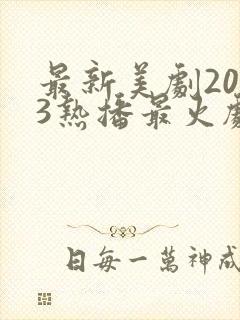 最新美劇20
3热播最火劇
日每一萬神成